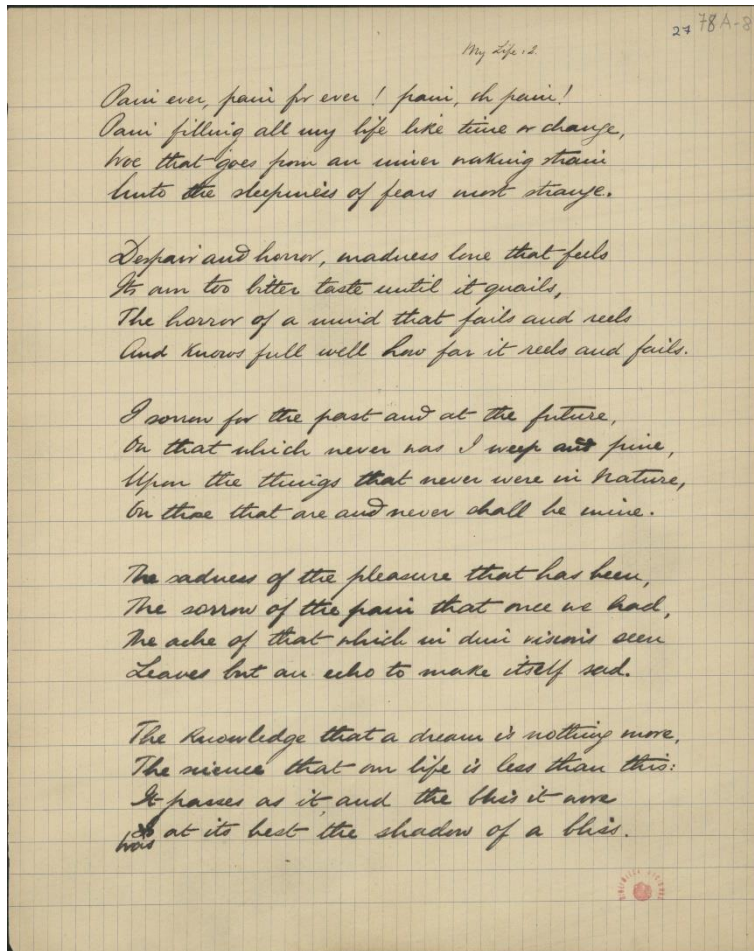 27 78A-8
My Life. 2.
Pain ever, pain for ever! pain, oh pain!
Pain filling all my life like time or change,
Woe that goes from an inner waking strain
Unto the sleepiness of fears most strange.
Despair and horror, madness love that feels
Its own too bitter taste until it quails,
The horror of a mind that fails and reels
And knows full well how far it reels and fails.
I sorrow for the past and at the future,
On that which never was I weep and pine,
Upon the things that never were in Nature,
On those that are and never shall be mine.
The sadness of the pleasure that has been,
The sorrow of the pain that once we had,
The ache of that which in dim visions seen
Leaves but an echo to make itself sad.
The knowledge that a dream is nothing more,
The science that our life is less than this:
It passes as it, and the bliss it wore
Was at its best the shadow of a bliss.